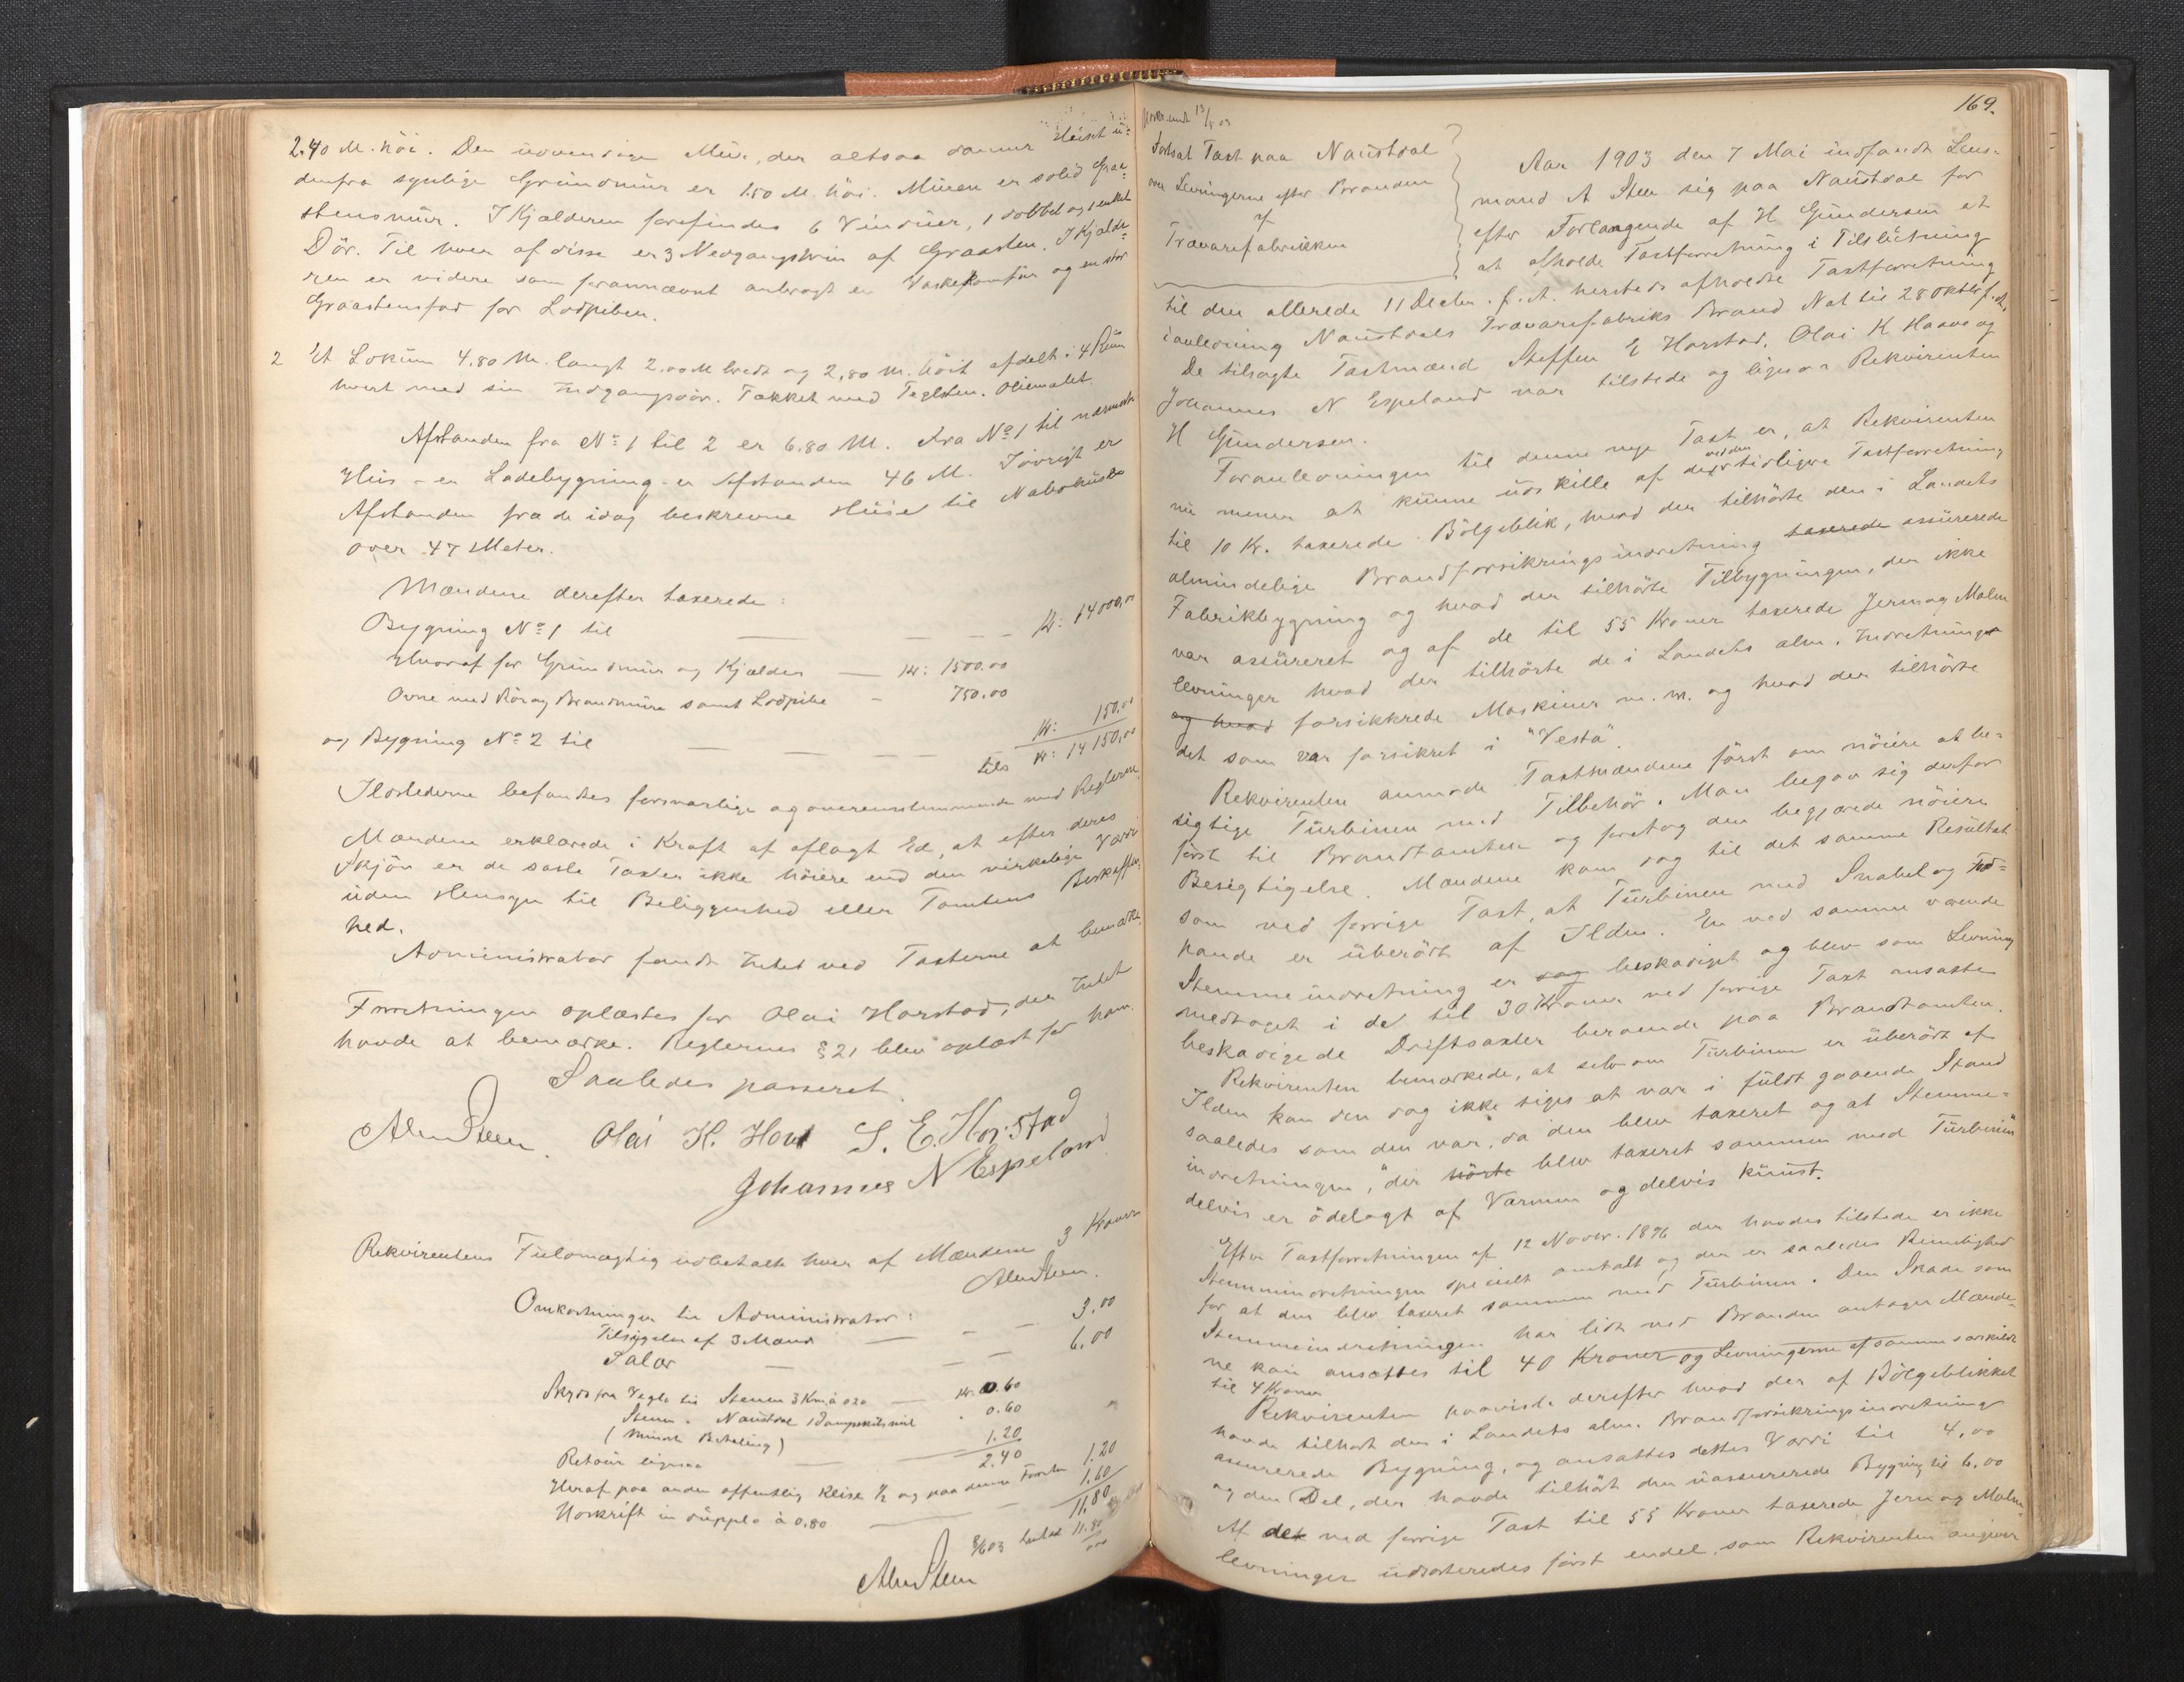 2.40 M. höi. Den udvendige Mur, der altsaa danner Huset u-
denfra synlige Grundmur er 1.50 M. höi. Muren er solid Graa-
stensmur. I Kjælderen forefindes 6 Vinduer, 1 dobbel og 1 enkel
Dör. Til hver af disse er 3 Nedgangstrin af Graasten. I Kjælde-
ren er videre som forannævnt anbragt en Vaskekomfur og en stor
Graastensfod for Lodpiben.
2 Et Lokum 4.80 M. langt 2.00 M bredt og 2,80 M. höit afdelt i 4 Rum
hvert med sin Indgangsdör. Takket med Teglsten. Oliemalet.
Afstanden fra No 1 til 2 er 6.80 M. Fra No 1 til nærmeste
Hus - en Ladebygning - er Afstanden 46 M. Iövrigt er
Afstanden fra de idag beskrevne Huse til Nabohuse
over 47 Meter.
Mændene derefter taxerede:
Bygning No 1 til — Kr: 14000,00
Hvoraf for Grundmur og Kjælder — Kr: 1500.00
Ovne med Rör og Brandmure samt Lodpibe - 750.00
og Bygning No 2 til — Kr: 150.00
tils Kr: 14150,00
Ildstederne befandtes forsvarlige og overensstemmende med Reglerne.
Mændene erklærede i Kraft af aflagt Ed, at efter deres
Skjön er de satte Taxter ikke höiere end den virkelige Værdi
uden Hensyn til Beliggenhed eller Tomtens Beskaffen-
hed.
Administrator fandt Intet ved Taxterne at bemærke.
Forretningen oplæstes for Olai Horstad, der Intet
havde at bemærke. Reglernes § 21 blev oplæst for ham.
Saaledes passeret.
Alm Steen. Olai H. Hove S. E. Horstad
Johannes N Espeland
Rekvirentens Fuldmægtig udbetalte hver af Mændene 3 Kroner
Alm Steen.
Omkostninger til Administrator:
Tilsigelse af 3 Mænd — 3.00
Salær — 6.00
Skyds fra Vegle til Stenen 3 Km à 020 — Kr. 0.60
Stenen - Naustdal 1 Dampskibsmil - 0.60
(Minste Betaling)
Retour ligesaa — 1.20
2.40
Heraf paa anden offentlig Reise ½ og paa denne Forretn 1.20
Udskrift in duplo à 0.80 — 1.60
11.80
Alm Steen
169.
Fortsat Taxt paa Naustdal
over Levningerne efter Branden
af
Trævarefabrikken
Aar 1903 den 7 Mai indfandt Lens-
mand A Steen sig paa Naustdal for
efter Forlangende af H Gundersen at
at afholde Taxtforretning i Tilslutning
til den allerede 11 Decbr. f. A. hersteds afholdte Taxtforretning
i anledning Naustdals Trævarefabriks Brand Nat til 28 Oktbr f. A.
De tilsagte Taxtmænd Steffen E Horstad, Olai K Haave og
Johannes N Espeland var tilstede og ligesaa Rekvirenten
H Gundersen.
Foranledningen til denne nye Taxt er, at Rekvirenten
nu mener at kunne udskille af det ved den tidligere Taxtforretning
til 10 Kr. taxerede Bölgeblik, hvad der tilhörte den i Landets
almindelige Brandforsikringsindretning taxerede assurerede
Fabrikbygning og hvad der tilhörte Tilbygningen, der ikke
var assureret og af de til 55 Kroner taxerede Jern og Malm
levninger hvad der tilhörte de i Landets alm. Indretninger
og hvad forsikkrede Maskiner m. m. og hvad der tilhörte
det som var forsikret i "Vesta".
Rekvirenten anmode Taxtmændene först om nöiere at be-
sigtige Turbinen med Tilbehör. Man begav sig derfor
först til Brandtomten og foretog den begjærede nöiere
Besigtigelse. Mændene kom dog til det samme Resultat
som ved forrige Taxt, at Turbinen med Snabel og Ind-
hande er uberört af Ilden. En ved samme værende
Stemmeindretning er dog beskadiget og blev som Levning
medtaget i det til 30 Kroner ved forrige Taxt ansatte
beskadigede Driftsaxler beroende paa Brandtomten.
Rekvirenten bemærkede, at selv om Turbinen er uberört af
Ilden kan den dog ikke siges at var i fuldt gaaende Stand
saaledes som den var, da den blev taxeret og at Stemme-
indretningen, "der hörte blev taxeret sammen med Turbinen"
delvis er ödelagt af Varmen og delvis knust.
Efter Taxtforretningen af 12 Novbr. 1896 der havdes tilstede er ikke
Stemmindretningen specielt omtalt og der er saaledes Rimelighed
for at den blev taxeret sammen med Turbinen. Den Skade som
Stemmeindretningen har lidt ved Branden antager Mænde-
ne kan ansættes til 40 Kroner og Levningerne af samme særskildt
til 4 Kroner
Rekvirenten paaviste derefter hvad der af Bölgeblikket
havde tilhørt den i Landets alm. Brandforsikringsindretning
assurerede Bygning, og ansattes dettes Værdi til 4,00
og den Del, der havde tilhört den uassurerede Bygning til 6.00
Af det ved forrige Taxt til 55 Kroner taxerede Jern og Malm-
levninger udsorteredes först endel, som Rekvirenten angiver